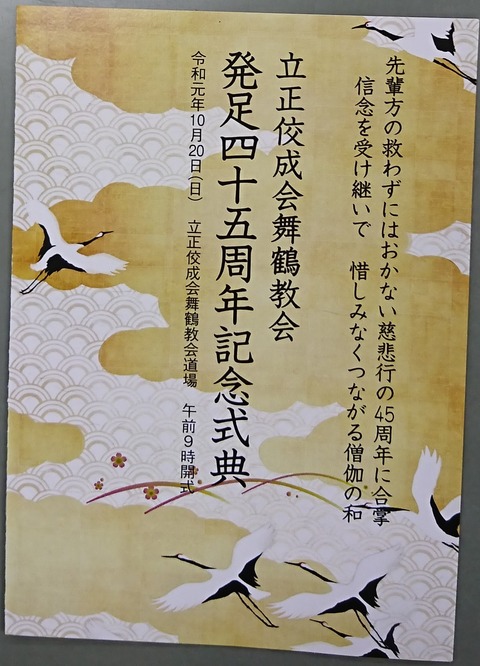 先輩方の救わずにはおかない慈悲行の45周年に合掌
信念を受け継いで　惜しみなくつながる僧伽の和
立正佼成会舞鶴教会
発足四十五周年記念式典
令和元年10月20日(日)　立正佼成会舞鶴教会道場　午前9時開式